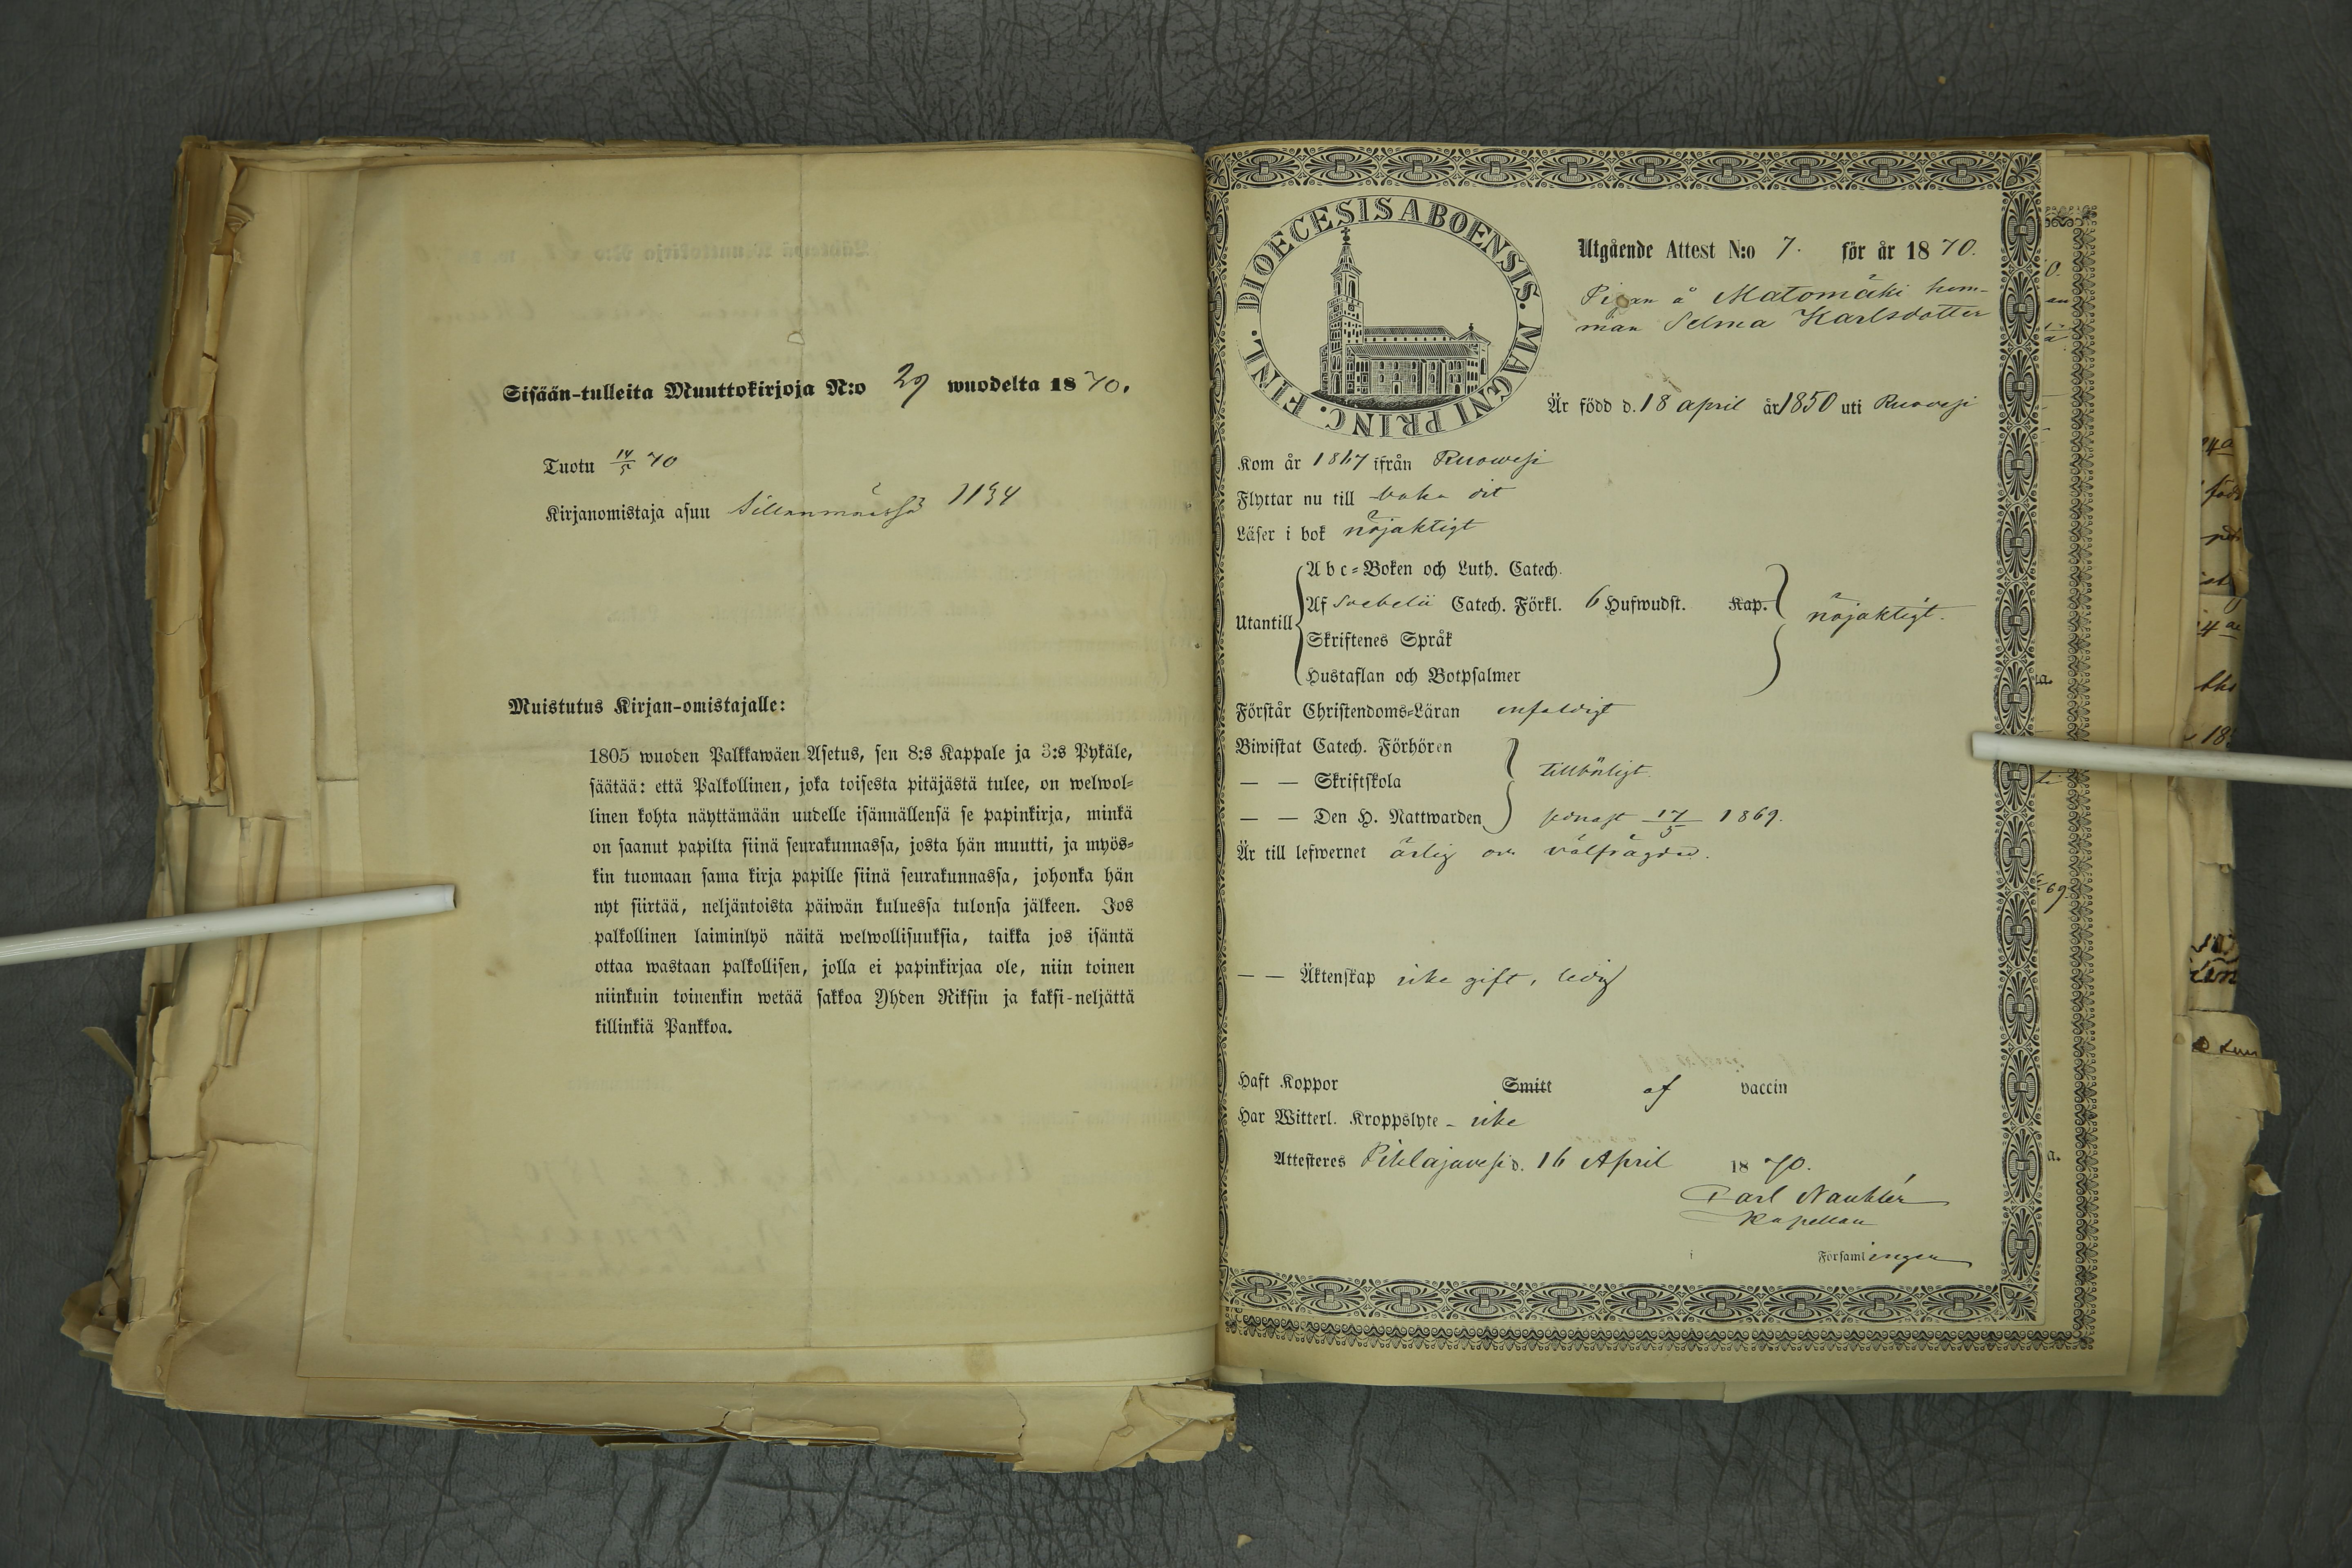 Sisään-tulleita Muuttokirjoja N:o 29 wuodelta 1870.
Tuotu 14/5 70
Kirjanomistaja asuu Sillanmäessä 1194
Muistutus Kirjan-omistajalle:
1805 wuoden Palkkawäen Asetus, sen 8:s Kappale ja 3:s Pykäle,
säätää: että Palkollinen, joka toisesta pitäjästä tulee, on welwol-
linen kohta näyttämään uudelle isännällensä se papinkirja, minkä
on saanut papilta siinä seurakunnassa, josta hän muutti, ja myös-
kin tuomaan sama kirja papille siinä seurakunnassa, johonka hän
nyt siirtää, neljäntoista päiwän kuluessa tulonsa jälkeen. Jos
palkollinen laiminlyö näitä welwollisuuksia, taikka jos isäntä
ottaa wastaan palkollisen, jolla ei papinkirjaa ole, niin toinen
niinkuin toinenkin wetää sakkoa Yhden Riksin ja kaksi-neljättä
killinkiä Pankkoa.
DIOECESIS ABOENSIS. MAGNI PRINC. FINL.
Utgående Attest N:o 7. för år 1870.
Pigan å Matomäki hem-
man Selma Karlsdotter
Är född d. 18 april år 1850 uti Ruovesi
Kom år 1867 ifrån Ruowesi
Flyttar nu till -baka dit
Läser i bok nöjaktigt
Utantill
Abc-Boken och Luth. Catech.
Af Svebelii Catech. Förkl. 6 Hufwudst. Kap.
Skriftenes Språk
Hustaflan och Botpsalmer
nöjaktigt.
Förstår Christendoms-Läran enfaldigt
Biwistat Catech. Förhören
— — Skriftskola
tillbörligt
— — Den H. Nattwarden senast 17/5 1869.
Är till lefwernet ärlig och välfrägdad.
— — Äktenskap icke gift, ledig
Haft Koppor Smitt af vaccin
Har Witterl. Kroppslyte - icke
Attesteres Pihlajavesi d. 16 April 1870.
Carl Nauklér
Kapellan
i Församlingen